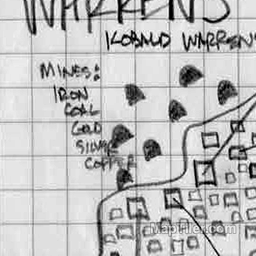 WARRENS
KOBALD WARRENS
MINES:
IRON
COAL
GOLD
SILVER
COPPER